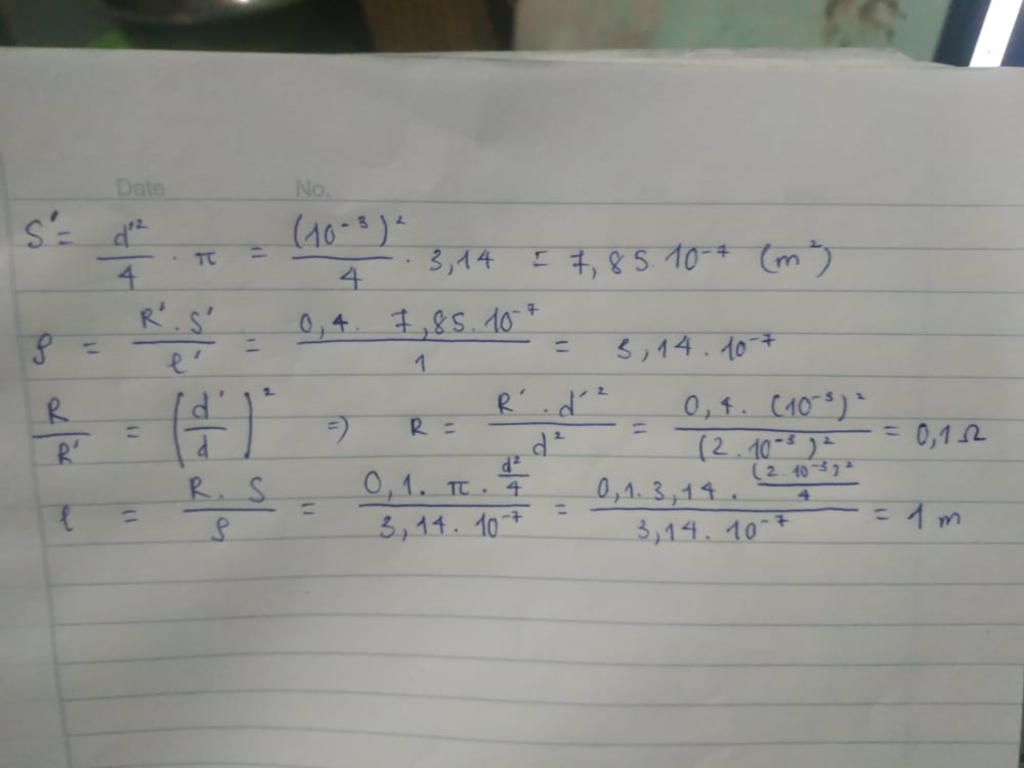 Date No.
S' = d'²/4 · π = (10⁻³)²/4 · 3,14 = 7,85.10⁻⁷ (m²)
ρ = R'.S'/ℓ' = 0,4. 7,85.10⁻⁷/1 = 3,14.10⁻⁷
R/R' = (d'/d)² => R = R'.d'²/d² = 0,4.(10⁻³)²/(2.10⁻³)² = 0,1Ω
ℓ = R.S/ρ = 0,1.π.d²/4/3,14.10⁻⁷ = 0,1.3,14.(2.10⁻³)²/4/3,14.10⁻⁷ = 1 m